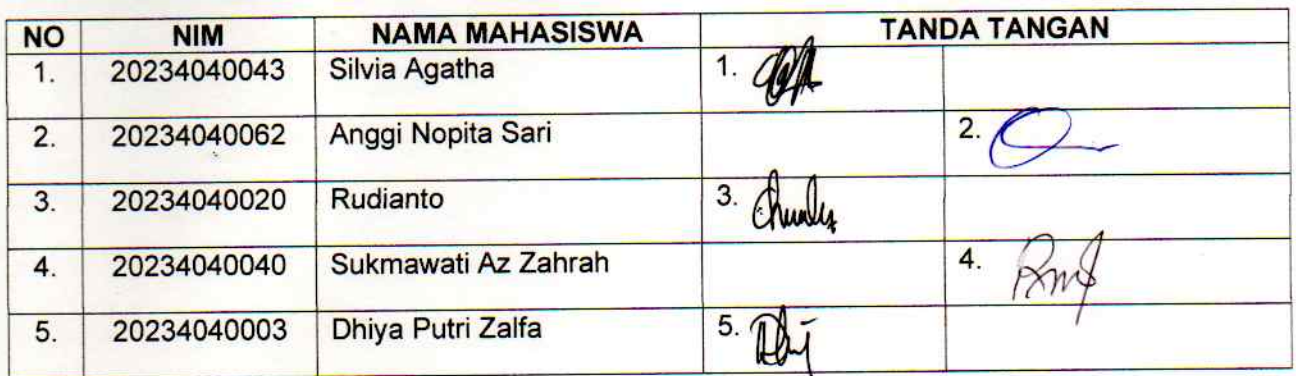 NO NIM NAMA MAHASISWA TANDA TANGAN
1. 20234040043 Silvia Agatha 1.
2. 20234040062 Anggi Nopita Sari 2.
3. 20234040020 Rudianto 3.
4. 20234040040 Sukmawati Az Zahrah 4.
5. 20234040003 Dhiya Putri Zalfa 5.